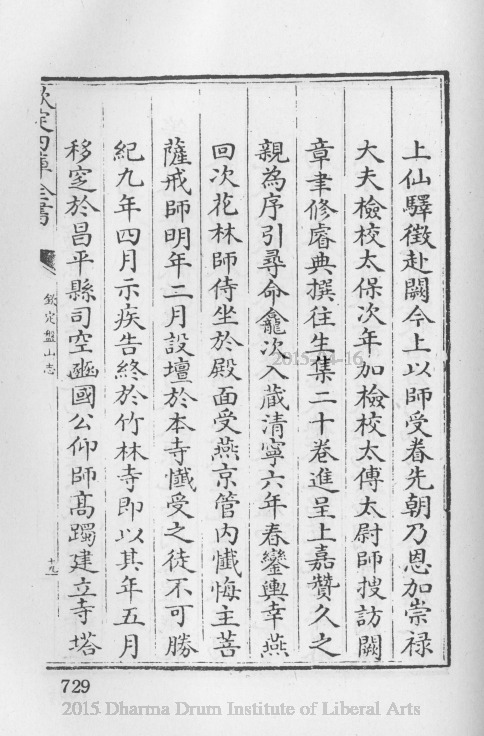 上仙驛徵赴闕今上以師受眷先朝乃恩加崇禄
大夫檢校太保次年加檢校太傅太尉師搜訪闕
章聿修睿典撰往生集二十卷進呈上嘉贊久之
親為序引尋命龕次入藏清寧六年春鑾輿幸燕
回次花林師侍坐於殿面受燕京管内懴悔主菩
薩戒師明年二月設壇於本寺懴受之徒不可勝
紀九年四月示疾告終於竹林寺即以其年五月
移窆於昌平縣司空豳國公仰師髙躅建立寺塔
欽定四庫全書
欽定盤山志
十九
729
2015-04-16
2015 Dharma Drum Institute of Liberal Arts